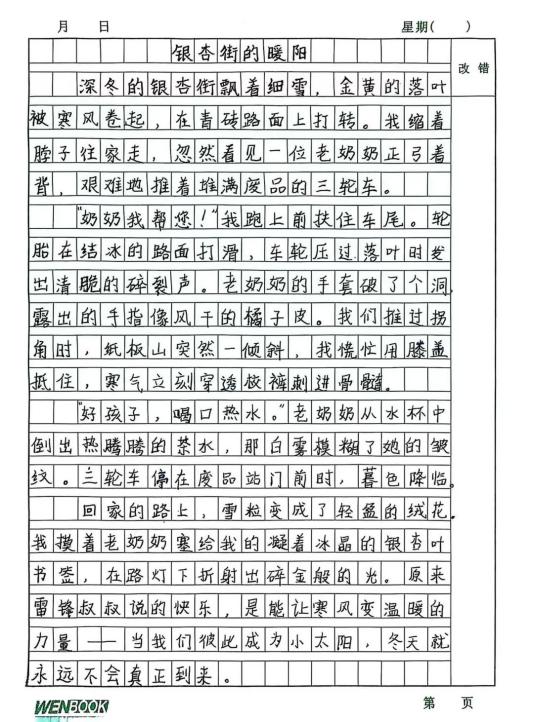 月 日 星期( )
银杏街的暖阳
改 错
深冬的银杏街飘着细雪，金黄的落叶
被寒风卷起，在青砖路面上打转。我缩着
脖子往家走，忽然看见一位老奶奶正弓着
背，艰难地推着堆满废品的三轮车。
"奶奶我帮您！"我跑上前扶住车尾。轮
胎在结冰的路面打滑，车轮压过落叶时发
出清脆的碎裂声。老奶奶的手套破了个洞，
露出的手指像风干的橘子皮。我们推过拐
角时，纸板山突然一倾斜，我慌忙用膝盖
抵住，寒气立刻穿透校裤刺进骨髓。
"好孩子，喝口热水。"老奶奶从水杯中
倒出热腾腾的茶水，那白雾模糊了她的皱
纹。三轮车停在废品站门前时，暮色降临。
回家的路上，雪粒变成了轻盈的绒花。
我摸着老奶奶塞给我的凝着冰晶的银杏叶
书签，在路灯下折射出碎金般的光。原来
雷锋叔叔说的快乐，是能让寒风变温暖的
力量——当我们彼此成为小太阳，冬天就
永远不会真正到来。
WENBOOK 第 页